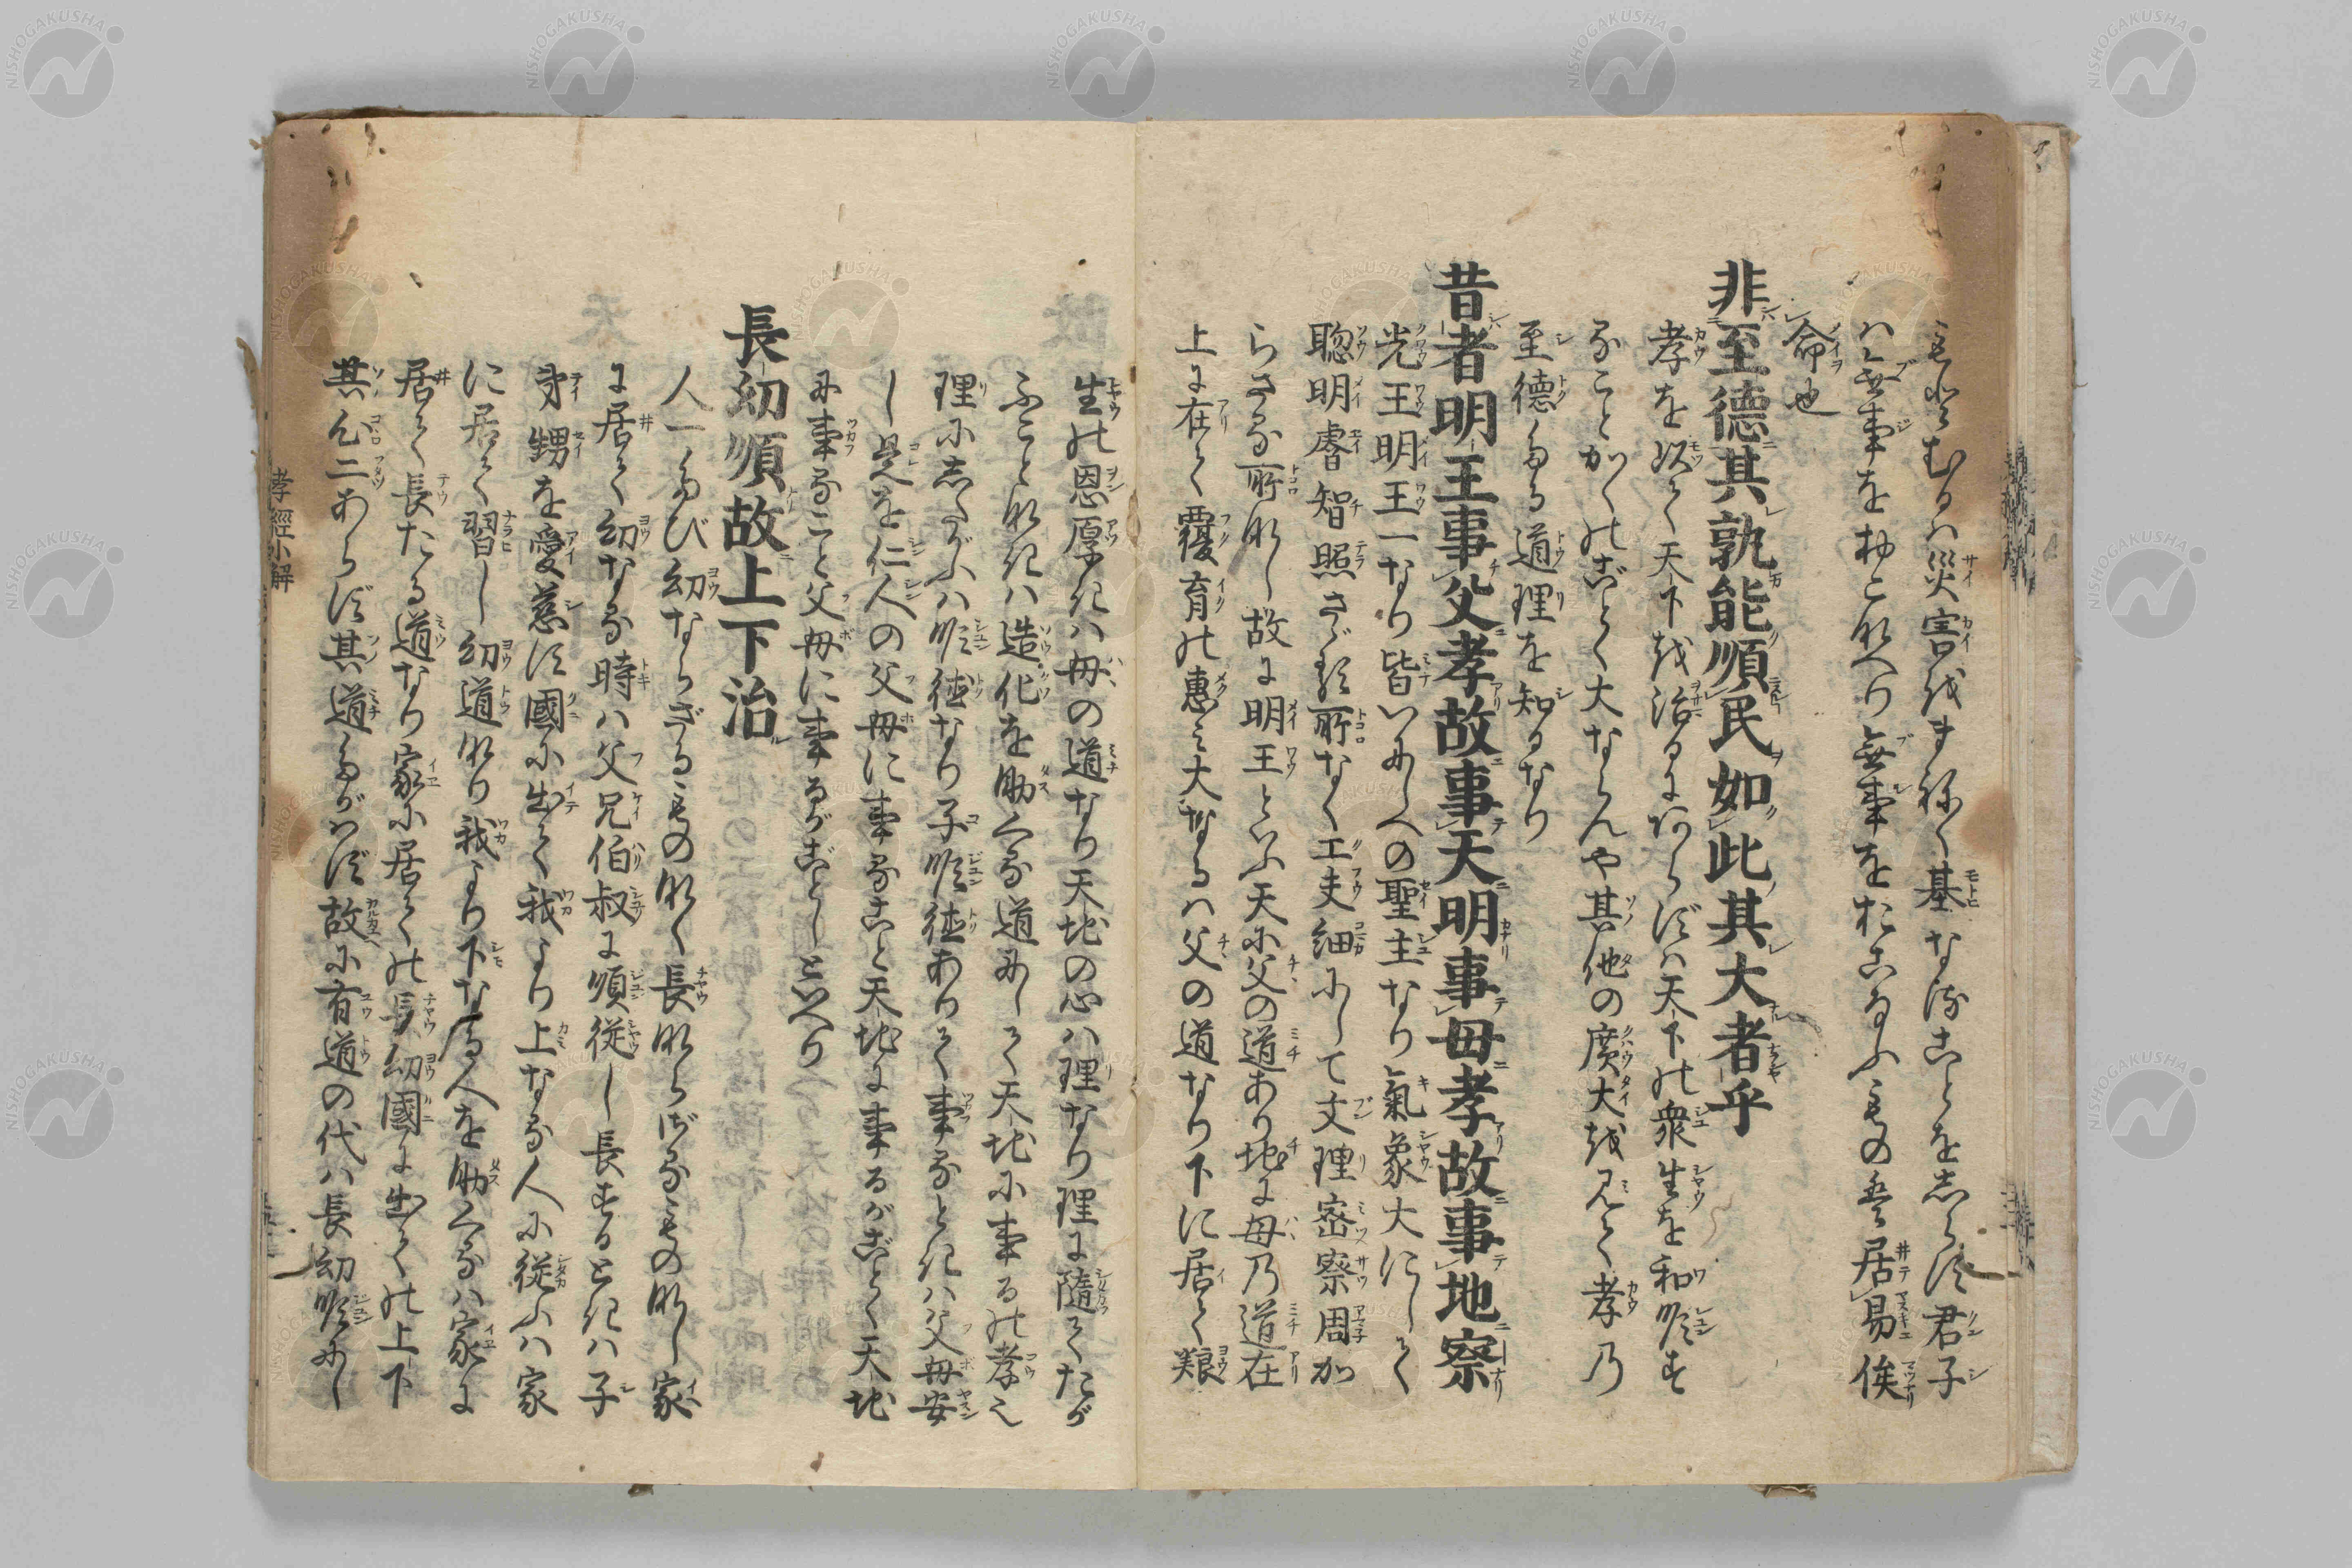 もとむるハ災害をまねく基なることをしらず君子
ハ無事をおこなへり無事をおこなふもの是居易俟
命也
非至德其孰能順民如此其大者乎
孝を以て天下を治るにあらずハ天下の衆生を和順す
ることかくのごとく大ならんや其他の廣大を見て孝乃
至德たる道理を知るなり
昔者明王事父孝故事天明事母孝故事地察
光王明王一なり皆いにしへの聖主なり氣象大にして
聡明睿智照さゞる所なく工夫細にして文理密察周か
らさる所なし故に明王といふ天に父の道あり地に母乃道在
上に在て覆育の惠ミ大なるハ父の道なり下に居て
生の恩厚きハ母の道なり天地の心ハ理なり理に隨てたが
ふことなきハ造化を助くる道にして天地に事るの孝也
理にしたがふハ順徳なり子順徳ありて事るときハ父母安
し是を仁人の父母に事ること天地に事るがごとく天地
に事ること父母に事るがごとしといへり
長幼順故上下治
人一たび幼ならざるものなく長ならざるものなし家
に居て幼なる時ハ父兄伯叔に順従し長するときハ子
弟甥を愛慈す國に出て我より上なる人に従ふハ家
に居て習し幼道なり我より下なる人を助くるハ家に
居て長たる道なり家に居ての長幼國に出ての上下
其心二あらず其道たがハず故に有道の代ハ長幼順にし
孝經小解